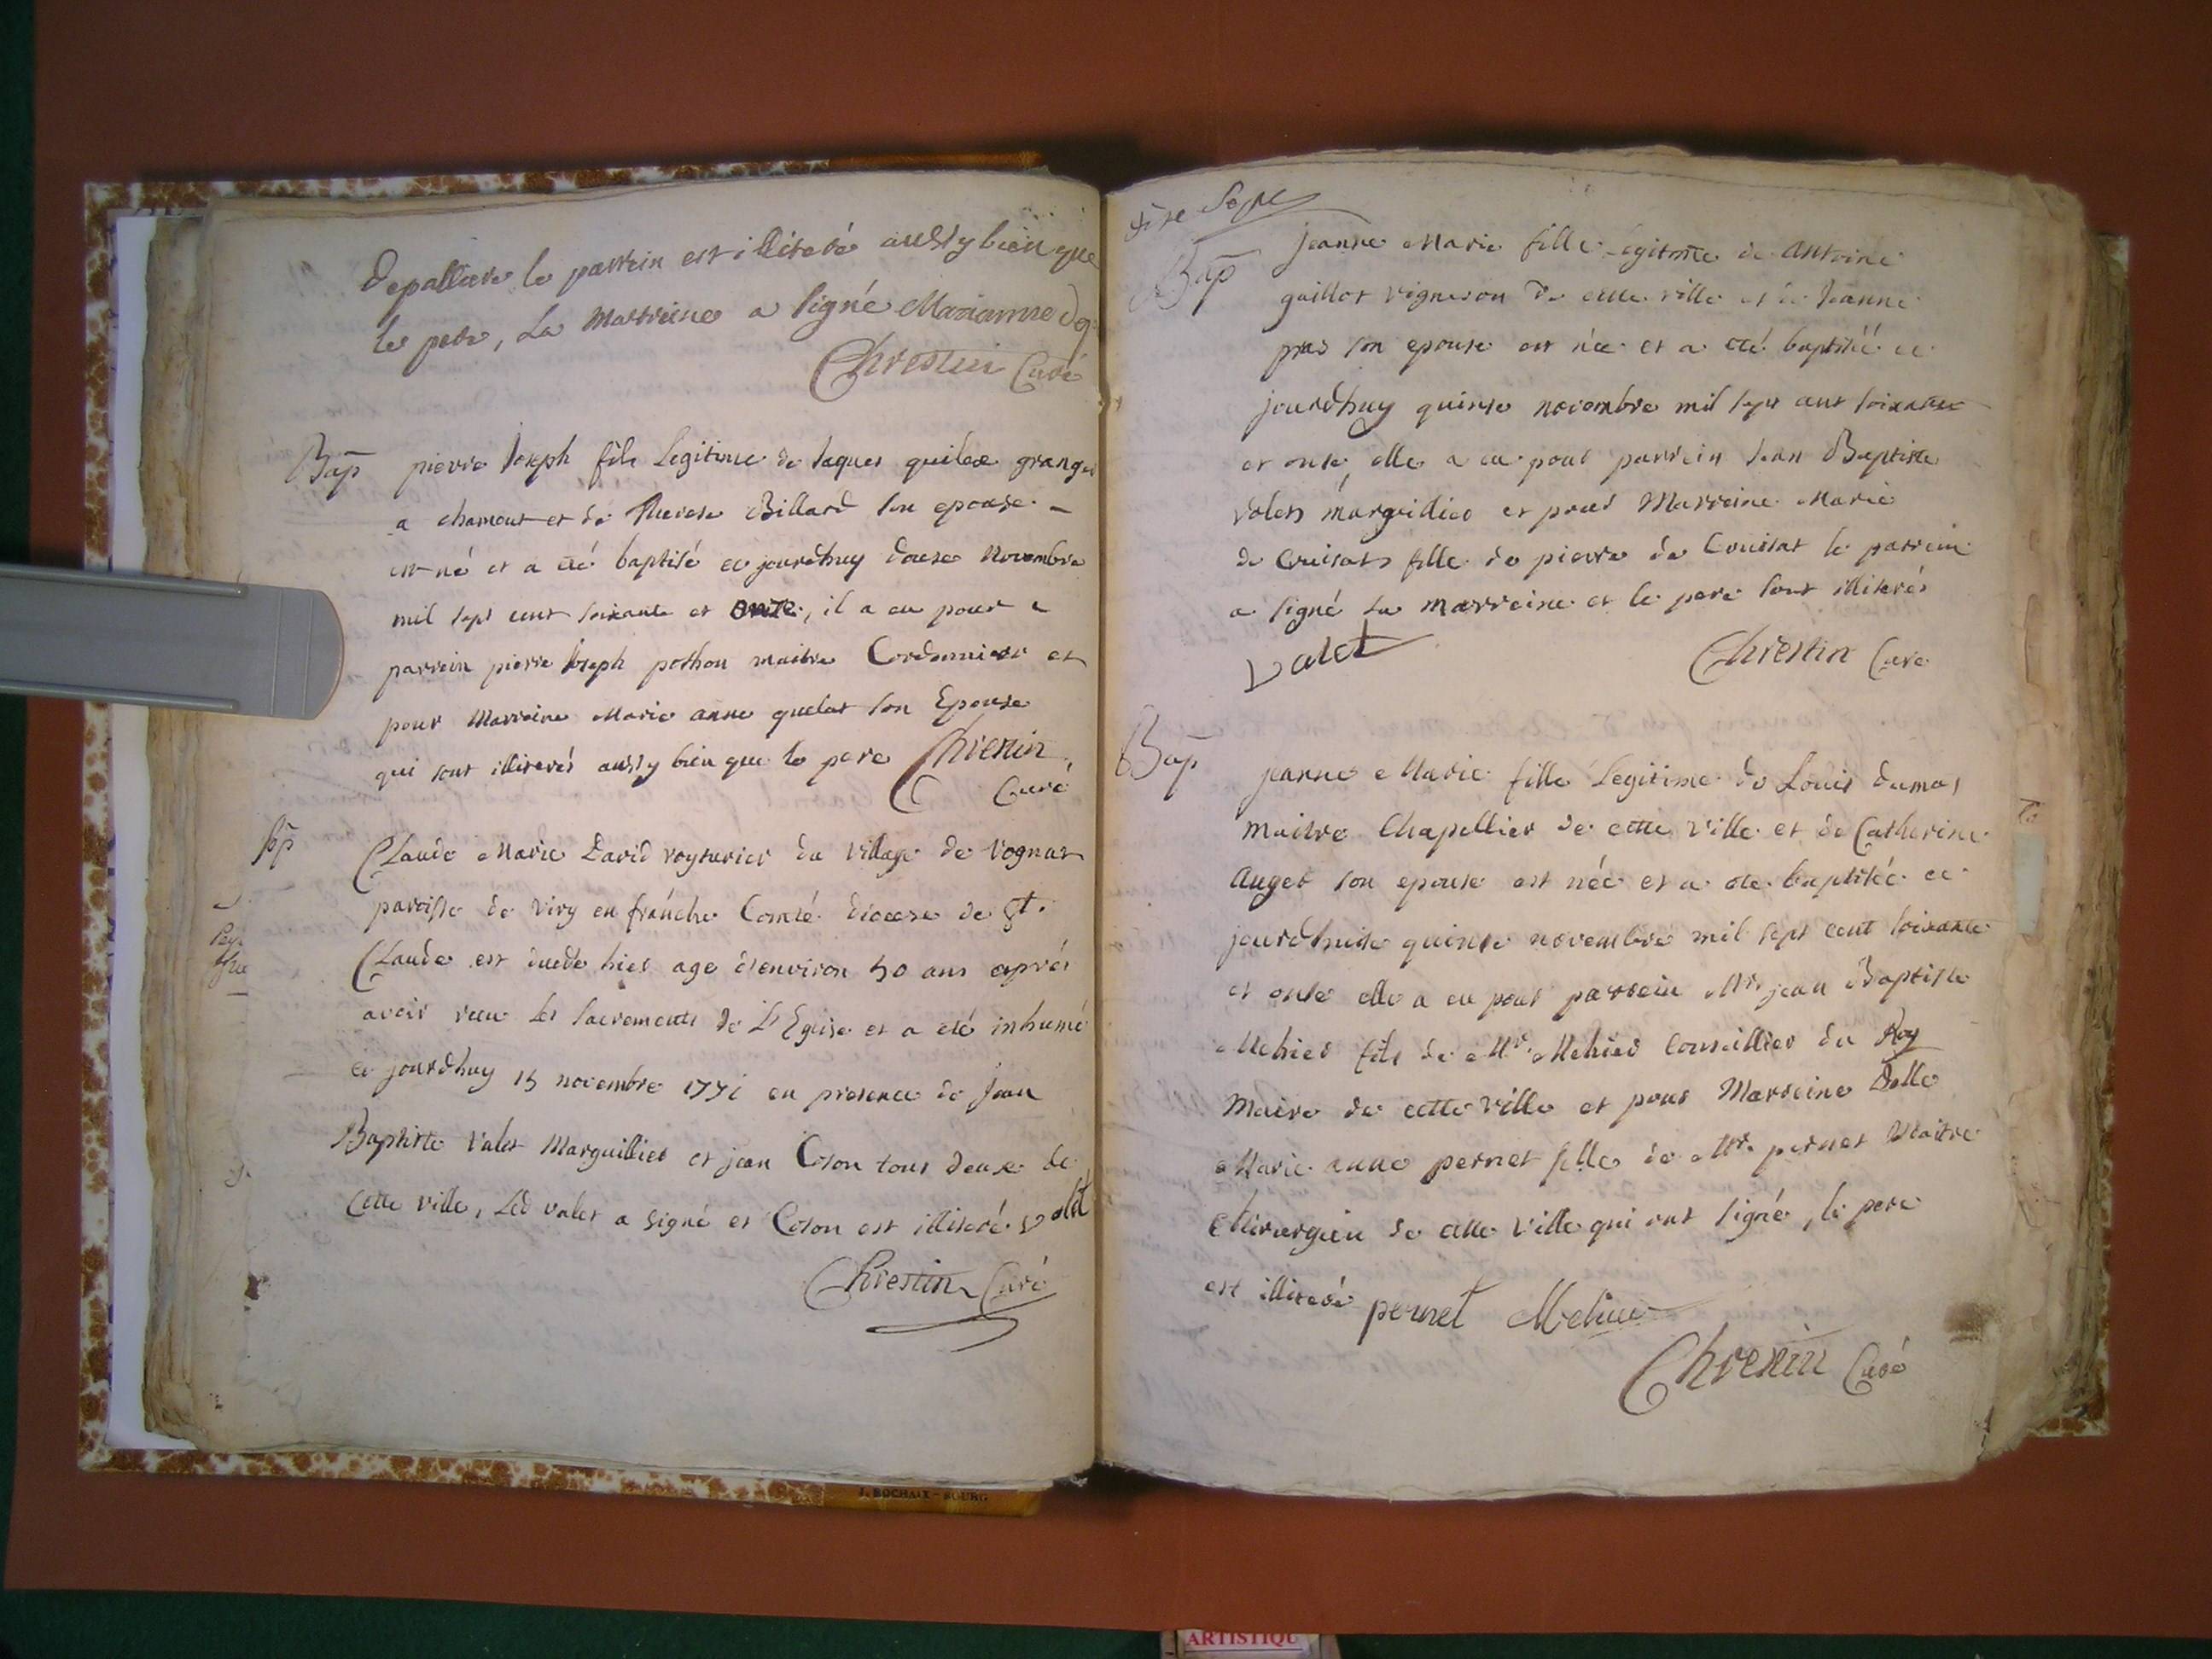 Depalliere le parrein est illiteré aussy bien que
le pere, La Marreine a signé Marianne Dep
Chrestin Curé
Bap pierre Joseph fils Legitime de Jaques quilex granger
a chamour et de Therese Billard son epouse
est né et a eté baptisé ce jourdhuy douse Novembre
mil sept cent soixante et onse, il a eu pour
parrein pierre Joseph pothon maitre Cordonnier et
pour Marreine Marie anne quelat son Epouse
qui sont illiterés aussy bien que le pere Chrestin
Curé
Sep Claude Marie David voyturier du village de Vognat
paroisse de Viry en franche Comté diocese de St.
Claude est hier age d'environ 50 ans aprés
avoir recu les sacrements de L'Eglise et a eté inhumé
ce jourdhuy 15 novembre 1771 en presence de Jean
Baptiste Valet Marguillier et jean Coson tous deux de
Cette ville, Led valet a signé et Coson est illiteré valet
Chrestin Curé
Bap Jeanne Marie fille legitime de Antoine
guillot vigneron de cette ville et de Jeanne
son epouse est née et a eté baptisée ce
jourdhuy quinse novembre mil sept cent soixante
et onse, elle a eu pour parrein Jean Baptiste
valet marguillier et pour Marreine Marie
de Cruisat fille de pierre de Cruisat le parrein
a signé La marreine et le pere sont illiterés
valet Chrestin Curé
Bap jeanne Marie fille Legitime de Louis dumas
maitre Chapellier de cette ville et de Catherine
auger son epouse est née et a ete baptisée ce
jourdhuise quinse novembre mil sept cent soixante
et onse elle a eu pour parrein Mr. jean Baptiste
Mehier fils de Mr. Mehier Conseillier du Roy
Maire de cette ville et pour Marreine Delle
Marie anne pernet fille de Mr. pernet Maitre
Chirurgien de cette ville qui ont signé, le pere
est illiteré pernet Mehier
Chrestin Curé
J. ROCHAIX - BOURG
ARTISTIQU